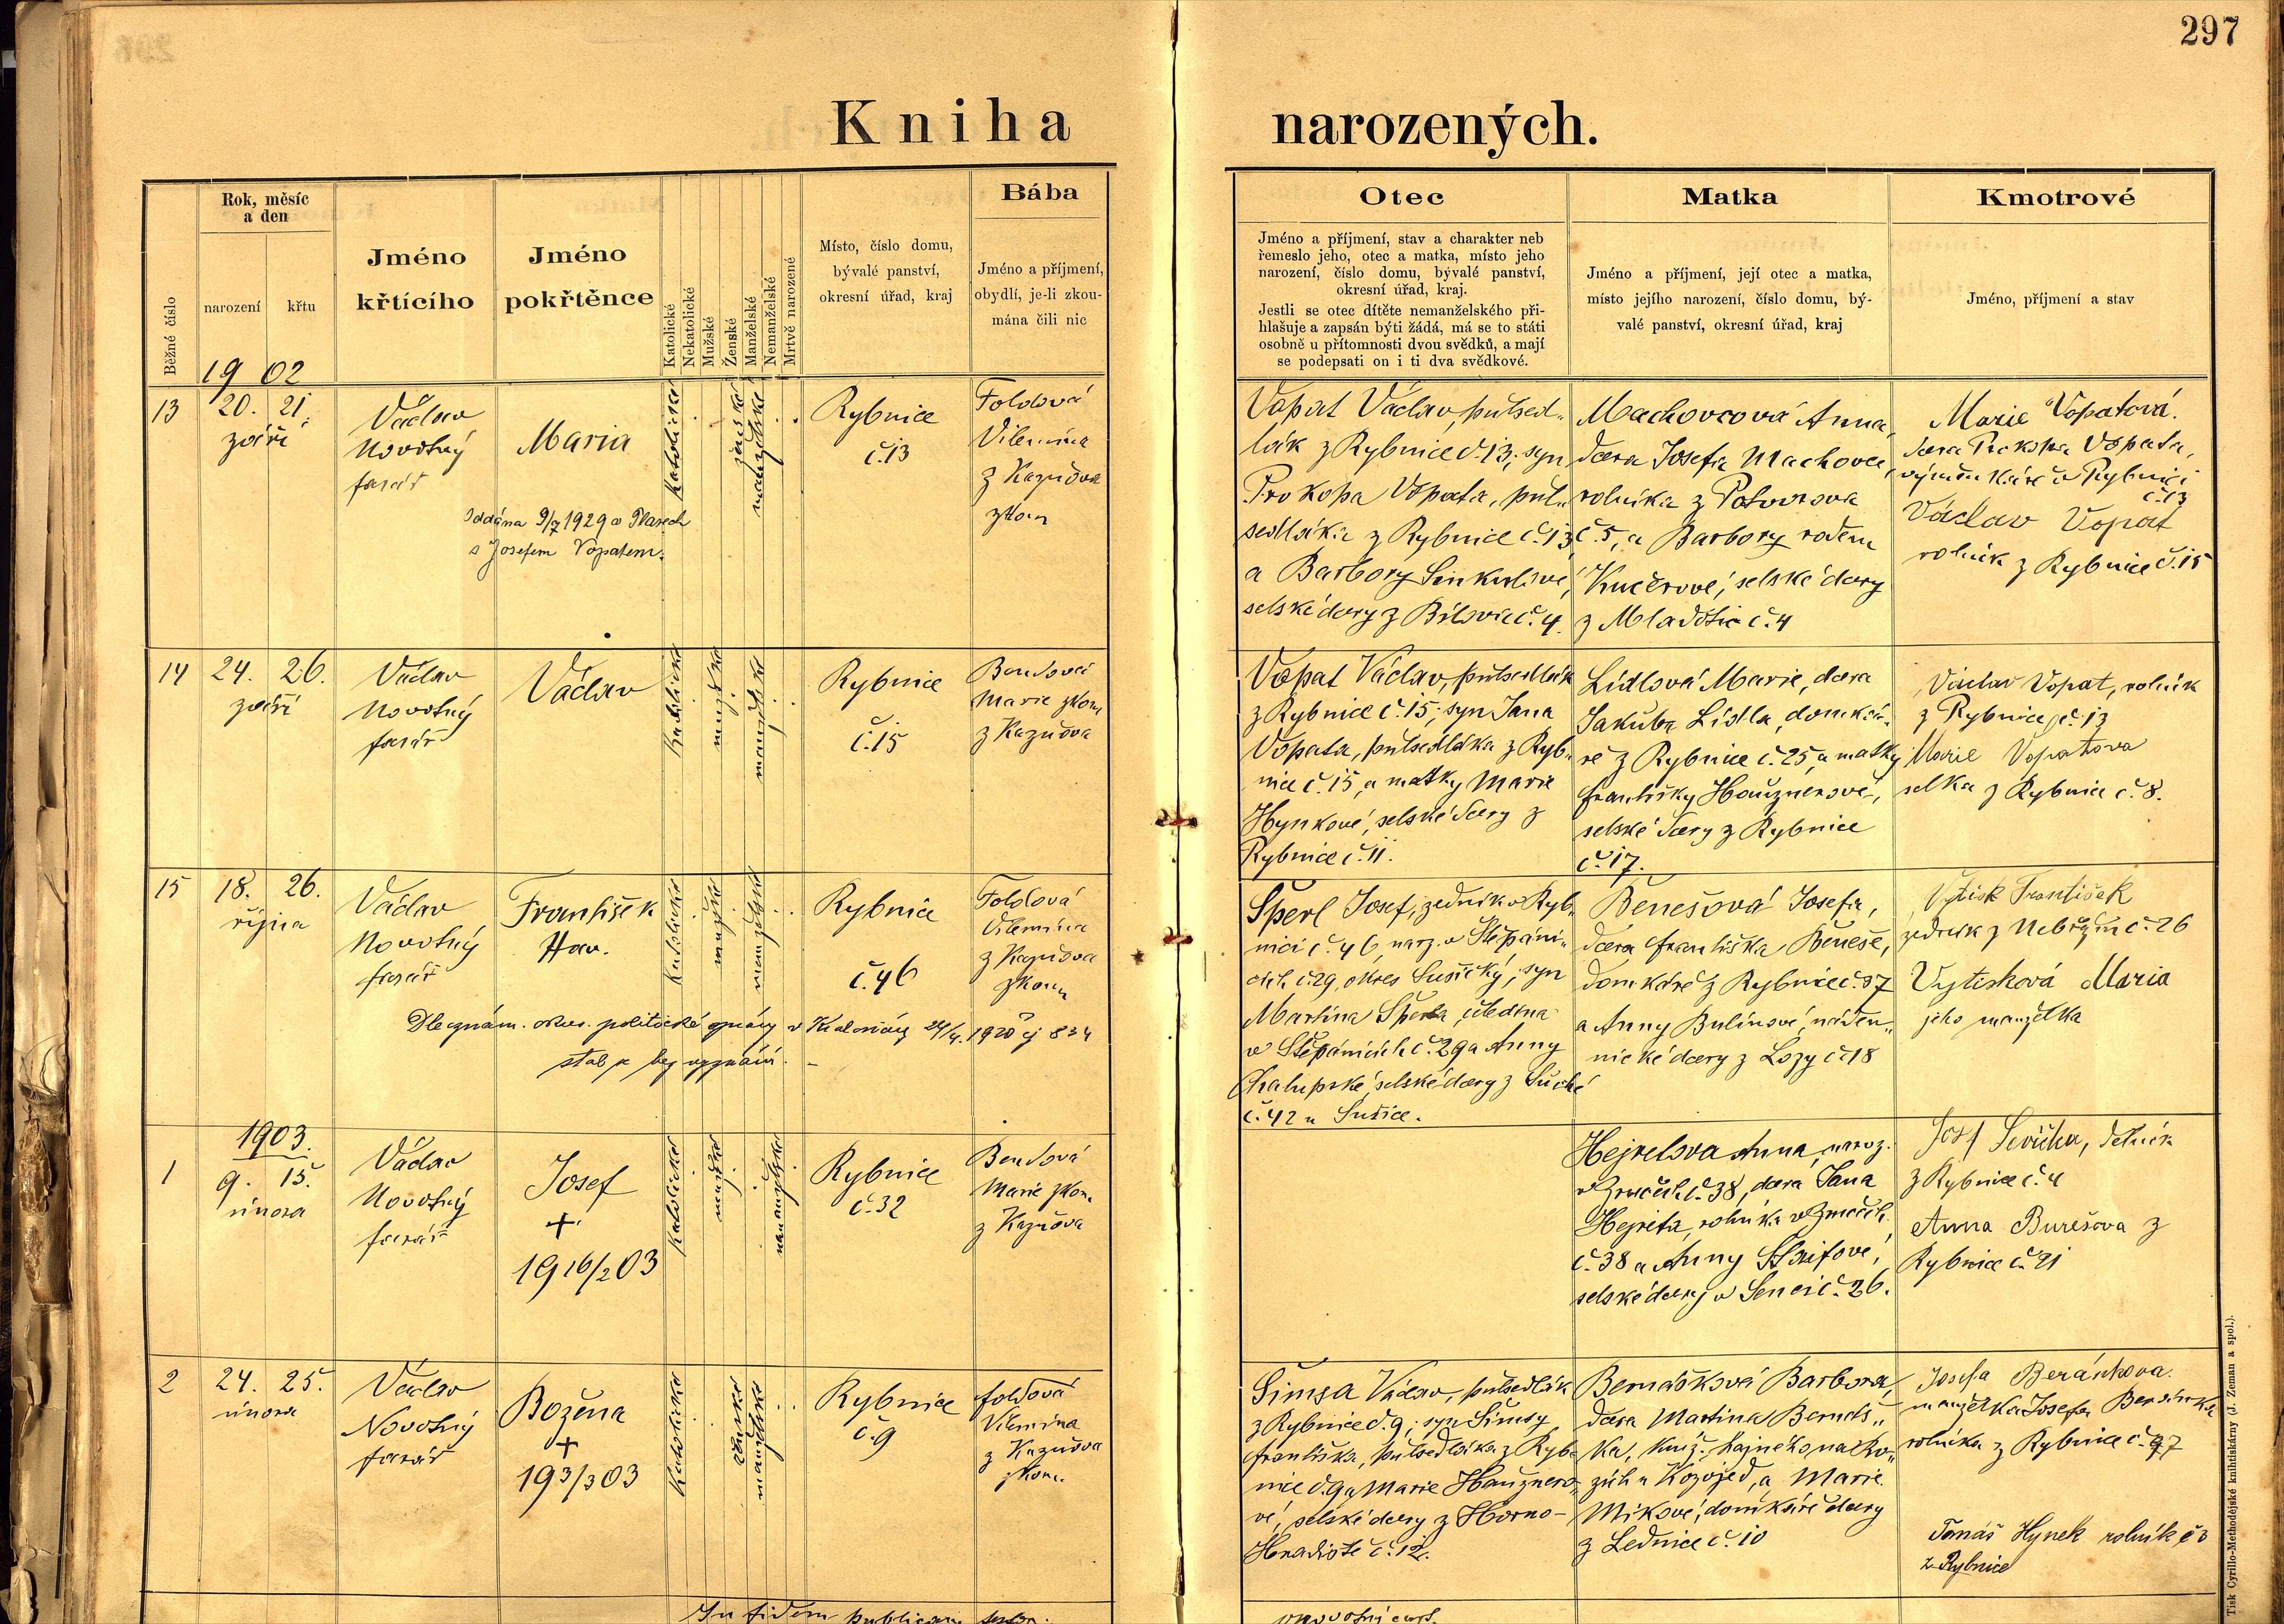 297
Kniha narozených.
Běžné číslo
Rok, měsíc
a den
narození
křtu
Jméno
křtícího
Jméno
pokřtěnce
Katolické
Nekatolické
Mužské
Ženské
Manželské
Nemanželské
Mrtvě narozené
Místo, číslo domu,
bývalé panství,
okresní úřad, kraj
Bába
Jméno a příjmení,
obydlí, je-li zkou-
mána čili nic
Otec
Jméno a příjmení, stav a charakter neb
řemeslo jeho, otec a matka, místo jeho
narození, číslo domu, bývalé panství,
okresní úřad, kraj.
Jestli se otec dítěte nemanželského při-
hlašuje a zapsán býti žádá, má se to státi
osobně u přítomnosti dvou svědků, a mají
se podepsati on i ti dva svědkové.
Matka
Jméno a příjmení, její otec a matka,
místo jejího narození, číslo domu, bý-
valé panství, okresní úřad, kraj
Kmotrové
Jméno, příjmení a stav
1902
13
20. 21.
září
Václav
Novotný
farář
Maria
Oddána 9/7 1929 v Plasech
s Josefem Vopatem.
katolické
ženské
manželské
Rybnice
č. 13
Foldová
Vilemína
z Kaznova
zkou
Vopat Václav, půlsed-
lák z Rybnice č. 13, syn
Prokopa Vopata, půl-
sedláka z Rybnice č. 13
a Barbory
selské dcery z Bílova č. 4.
Machovcová Anna,
dcera Josefa Machovce,
rolníka z Potvorova
č. 5, a Barbory rozené
Kučerové, selské dcery
z Mladotic č. 4
Marie Vopatová.
dcera Prokopa Vopata,
výměnkáře v Rybnici
č. 13
Václav Vopat
rolník z Rybnice č. 15
14
24. 26.
září
Václav
Novotný
farář
Václav
katolické
mužské
manželské
Rybnice
č. 15
Bendová
Marie zkou
z Kaznova
Vopat Václav, půlsedlák
z Rybnice č. 15, syn Jana
Vopata, půlsedláka z Ryb-
nice č. 15, a matky Marie
Hynkové, selské dcery z
Rybnice č. 11.
Lídlová Marie, dcera
Jakuba Lídla, domká-
ře z Rybnice č. 25, a matky
Františky Hauznerové,
selské dcery z Rybnice
č. 17.
Václav Vopat, rolník
z Rybnice, č. 13
Marie Vopatova
selka z Rybnice č. 8.
15
18. 26.
října
Václav
Novotný
farář
František
Hav.
katolické
mužské
manželské
Rybnice
č. 46
Foldová
Vilemína
z Kaznova
zkou
Dle oznám. okres. politické správy v Kralovicích 1920 čj 834
stal se bez vyznání. –
Šperl Josef, zedník v Ryb-
nici č. 46, narz. v Štěpáni-
cích č. 29, okres Sušický, syn
Martina Šperla,
v Štěpánicích č. 29 a Anny
Chalupské, selské dcery z Suché
č. 42 u Sušice.
Benešová Josefa,
dcera Františka Beneše,
domkáře z Rybnice č. 37
a Anny Bulínové, náden-
nické dcery z Lozy č. 18
Vytisk František
zedník z Nebřezin č. 26
Vytisková Maria
jeho manželka
1903.
1
9. 15.
února
Václav
Novotný
farář
Josef
+
19 16/2 03
katolické
mužské
nemanželské
Rybnice
č. 32
Bendová
Marie zkou.
z Kaznova
Hejretova Anna, naroz.
v Zručích č. 38, dcera Jana
Hejreta, rolníka v Zručích
č. 38 a Anny
selské dcery v Senci č. 26.
Josef Ševička, dělník
z Rybnice č. 4
Anna Burešova z
Rybnice č. 21
2
24. 25.
února
Václav
Novotný
farář
Božena
+
19 3/3 03
katolické
ženské
manželské
Rybnice
č. 9
Foldová
Vilemína
z Kaznova
zkou.
Šimsa Václav, půlsedlák
z Rybnice č. 9, syn Šimsy
Františka, půlsedláka z Ryb-
nice č. 9 a Marie Hauznero-
vé, selské dcery z Horno-
Hradiště č. 12.
Bernášková Barbora,
dcera Martina Bernáš-
ka, kníž. hajného na
u Kozojed, a Marie
Mikové, domkáře dcery
z Lednice č. 10
Josefa Beránkova.
manželka Josefa Beránka
rolníka z Rybnice č. 27
Tomáš Hynek rolník č 3
z Rybnice
In fidem publicam
Tisk Cyrillo-Methodějské knihtiskárny (J. Zeman a spol.).